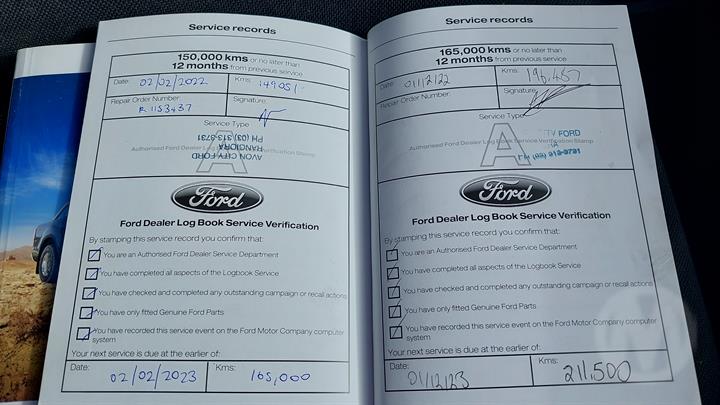 Service records
150,000 kms or no later than
12 months from previous service
Date: 02/02/2022 Kms: 149051
Repair Order Number: R1153437
Signature:
Service Type
A
Authorised Ford Dealer Log Book Service Verification Stamp
AVON CITY FORD
RANGIORA
PH (03) 313-3731
Ford
Ford Dealer Log Book Service Verification
By stamping this service record you confirm that:
You are an Authorised Ford Dealer Service Department
You have completed all aspects of the Logbook Service
You have checked and completed any outstanding campaign or recall actions
You have only fitted Genuine Ford Parts
You have recorded this service event on the Ford Motor Company computer
system
Your next service is due at the earlier of:
Date: 02/02/2023 Kms: 165,000
Service records
165,000 kms or no later than
12 months from previous service
Date: 01/12/22 Kms:
Repair Order Number: Signature:
Service Type
A
Authorised Ford Dealer Log Book Service Verification Stamp
TY FORD
Ford
Ford Dealer Log Book Service Verification
By stamping this service record you confirm that:
You are an Authorised Ford Dealer Service Department
You have completed all aspects of the Logbook Service
You have checked and completed any outstanding campaign or recall actions
You have only fitted Genuine Ford Parts
You have recorded this service event on the Ford Motor Company computer
system
Your next service is due at the earlier of:
Date: 01/12/23 Kms: 211,500